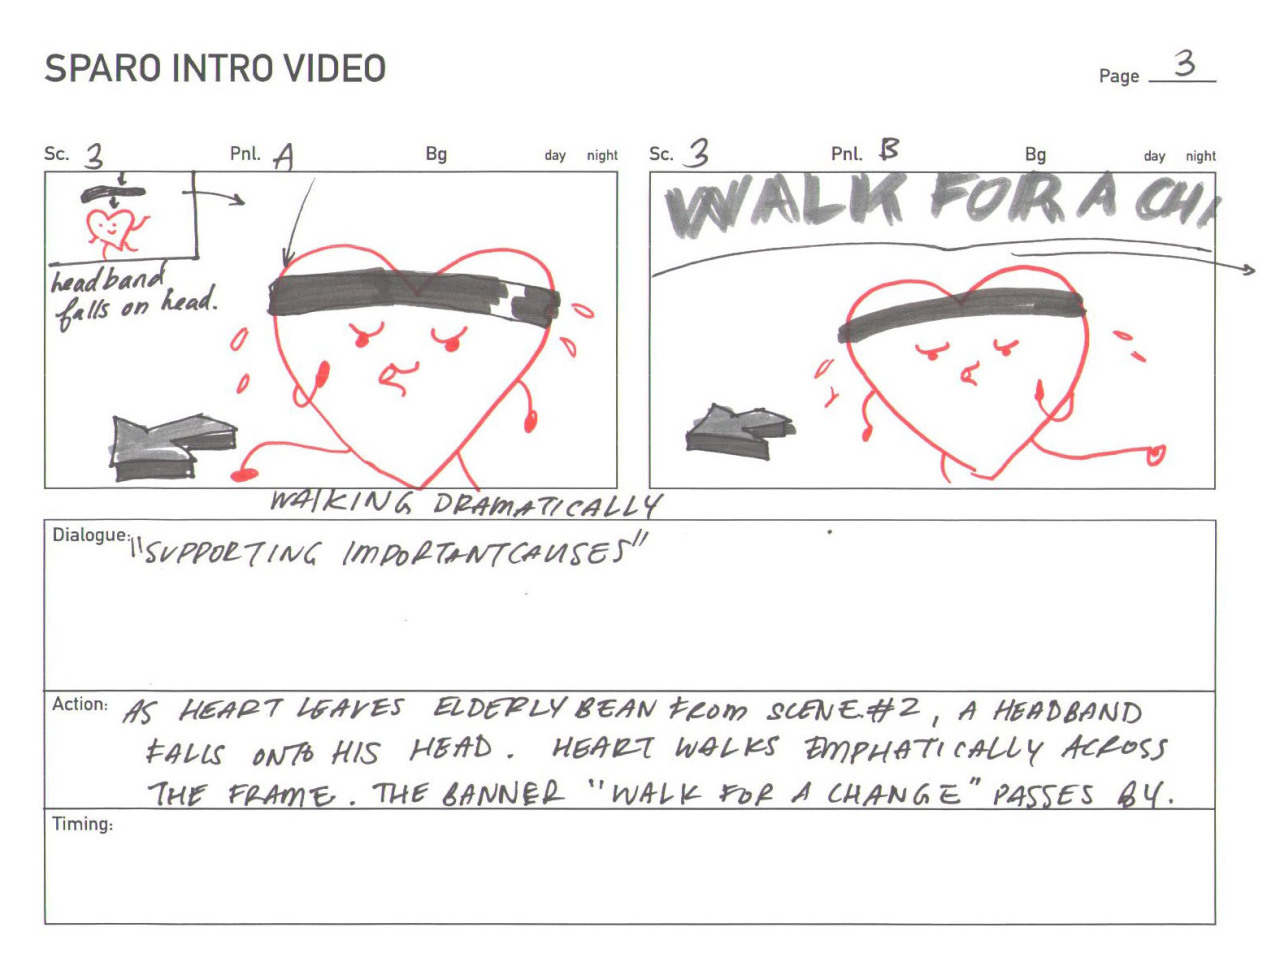 SPARO INTRO VIDEO
Page 3
Sc. 3 Pnl. A Bg day night
Sc. 3 Pnl. B Bg day night
headband
falls on head.
WALK FOR A CH
WALKING DRAMATICALLY
Dialogue: "SUPPORTING IMPORTANT CAUSES"
Action: AS HEART LEAVES ELDERLY BEAN FROM SCENE #2, A HEADBAND
FALLS ONTO HIS HEAD. HEART WALKS EMPHATICALLY ACROSS
THE FRAME. THE BANNER "WALK FOR A CHANGE" PASSES BY.
Timing: